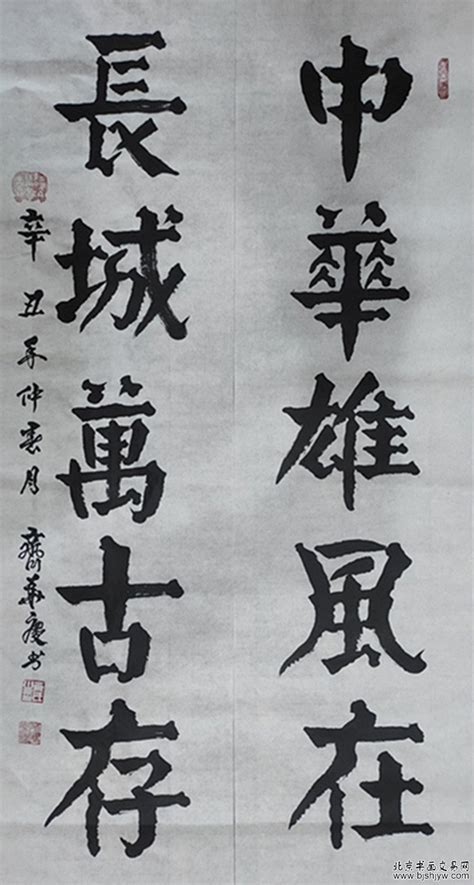 中華雄風在
長城萬古存
辛丑年仲春月 齊華慶书
北京书画交易网
www.bjshjyw.com